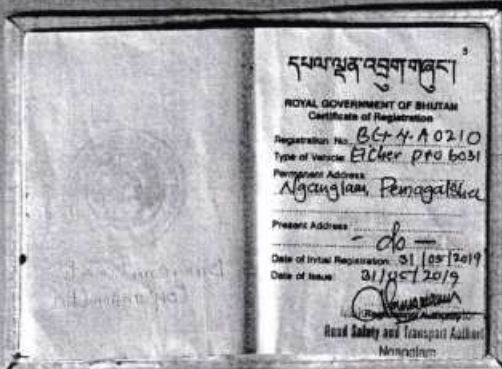 5
དཔལ་ལྡན་འབྲུག་གཞུང་།
ROYAL GOVERNMENT OF BHUTAN
Certificate of Registration
Registration No. BG-4-A0210
Type of Vehicle Eicher pro 6031
Permanent Address
Nganglam, Pemagatshel
Present Address
- do -
Date of Initial Registration 31/05/2019
Date of Issue 31/05/2019
Road Safety and Transport Authority
Nganglam